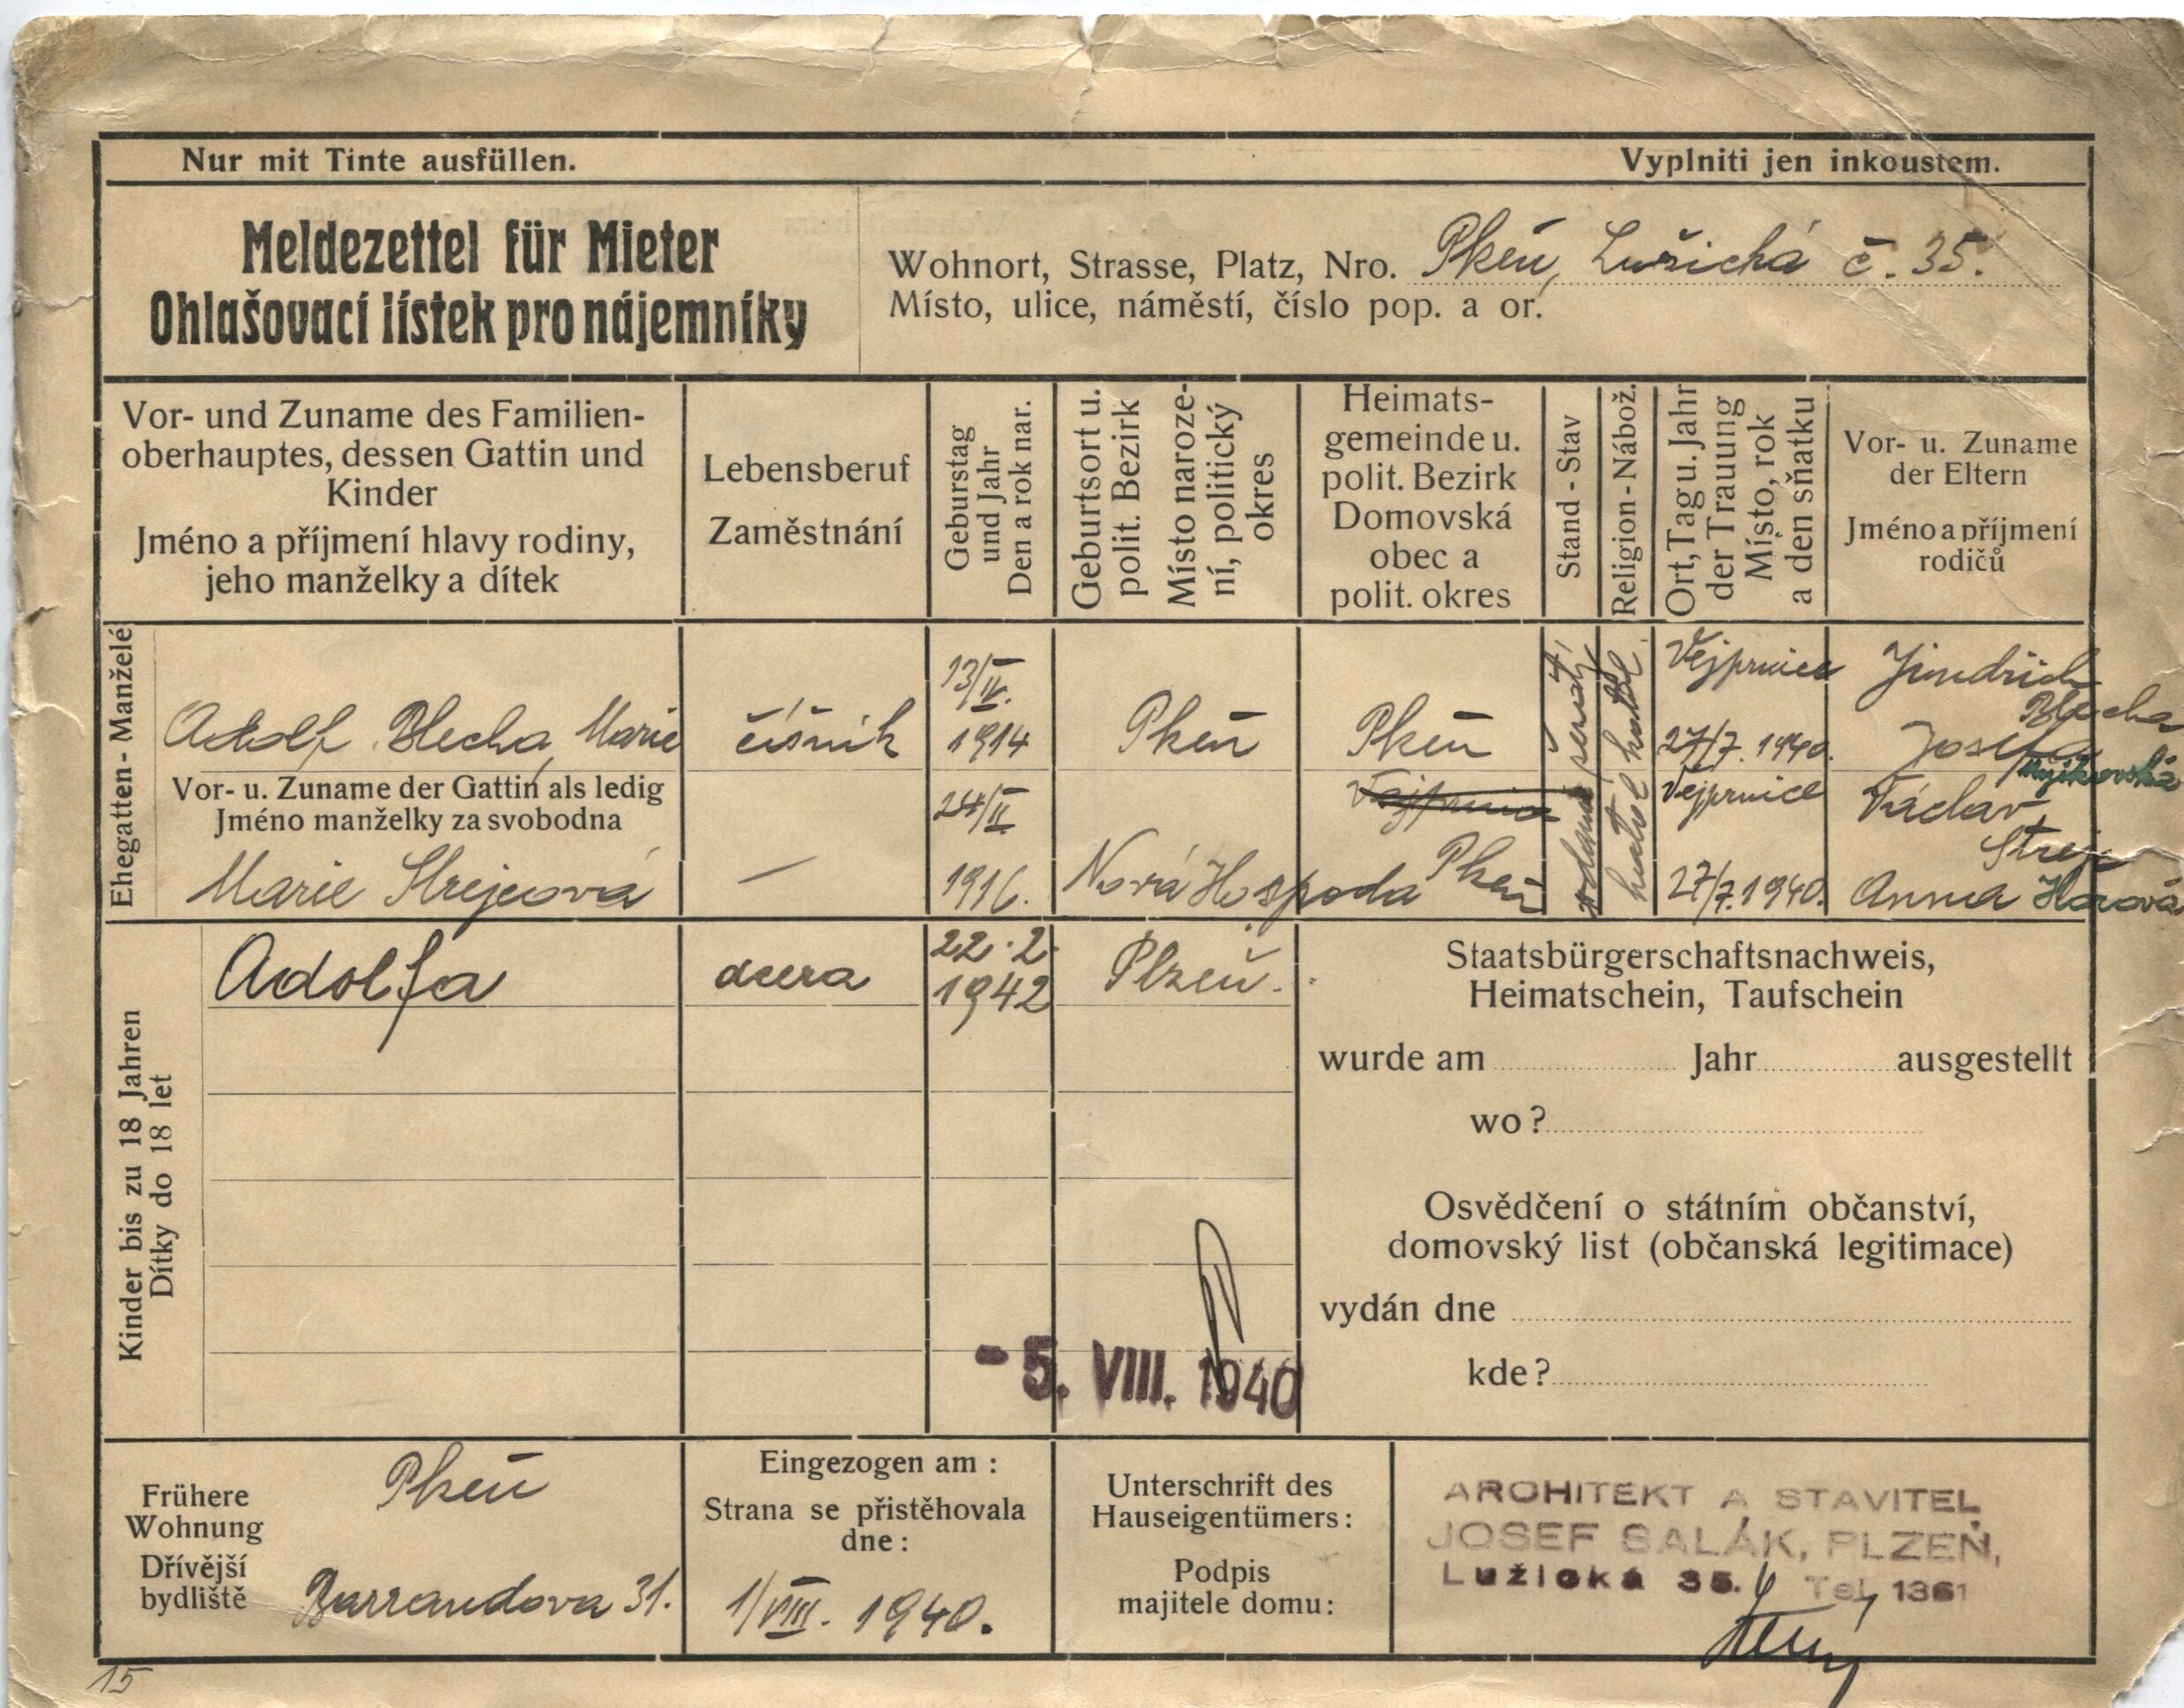 Nur mit Tinte ausfüllen.
Vyplniti jen inkoustem.
Meldezettel für Mieter
Ohlašovací lístek pro nájemníky
Wohnort, Strasse, Platz, Nro. Plzeň, Lužická č. 35.
Místo, ulice, náměstí, číslo pop. a or.
Vor- und Zuname des Familien-
oberhauptes, dessen Gattin und
Kinder
Jméno a příjmení hlavy rodiny,
jeho manželky a dítek
Lebensberuf
Zaměstnání
Geburstag
und Jahr
Den a rok nar.
Geburtsort u.
polit. Bezirk
Místo naroze-
ní, politický
okres
Heimats-
gemeinde u.
polit. Bezirk
Domovská
obec a
polit. okres
Stand - Stav
Religion - Nábož.
Ort, Tag u. Jahr
der Trauung
Místo, rok
a den sňatku
Vor- u. Zuname
der Eltern
Jméno a příjmení
rodičů
Ehegatten - Manželé
Adolf Blecha, Marie
číšník
13/IV.
1914
Plzeň
Plzeň
ženatý
Vejprnice
27/7. 1940.
Jindřich
Blecha
Josefa
Vor- u. Zuname der Gattin als ledig
Jméno manželky za svobodna
Marie Strejcová
—
24/II
1916.
Nová Hospoda
Vejprnice
Plzeň
Vejprnice
27/7. 1940.
Václav
Strejc
Anna
Kinder bis zu 18 Jahren
Dítky do 18 let
Adolfa
dcera
22. 2.
1942
Plzeň.
Staatsbürgerschaftsnachweis,
Heimatschein, Taufschein
wurde am Jahr ausgestellt
wo?
Osvědčení o státním občanství,
domovský list (občanská legitimace)
vydán dne
kde?
- 5. VIII. 1940
Frühere
Wohnung
Dřívější
bydliště
Plzeň
Barrandova 31.
Eingezogen am:
Strana se přistěhovala
dne:
1/VIII. 1940.
Unterschrift des
Hauseigentümers:
Podpis
majitele domu:
ARCHITEKT A STAVITEL
JOSEF SALÁK, PLZEŇ,
Lužická 35. Tel. 1361
15